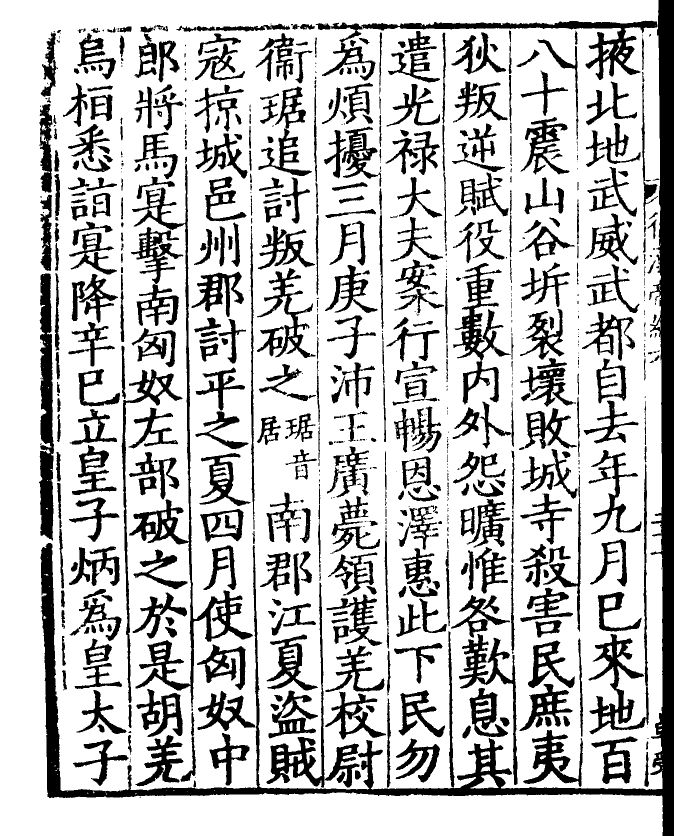 掖北地武威武都自去年九月巳來地百
八十震山谷坼裂壞敗城寺殺害民庶夷
狄叛逆賦役重數內外怨曠惟咎歎息其
遣光祿大夫案行宣暢恩澤惠此下民勿
爲煩擾三月庚子沛王廣薨領護羌校尉
衞琚追討叛羌破之琚音居南郡江夏盜賊
寇掠城邑州郡討平之夏四月使匈奴中
郎將馬寔擊南匈奴左部破之於是胡羌
烏桓悉詣寔降辛巳立皇子炳爲皇太子